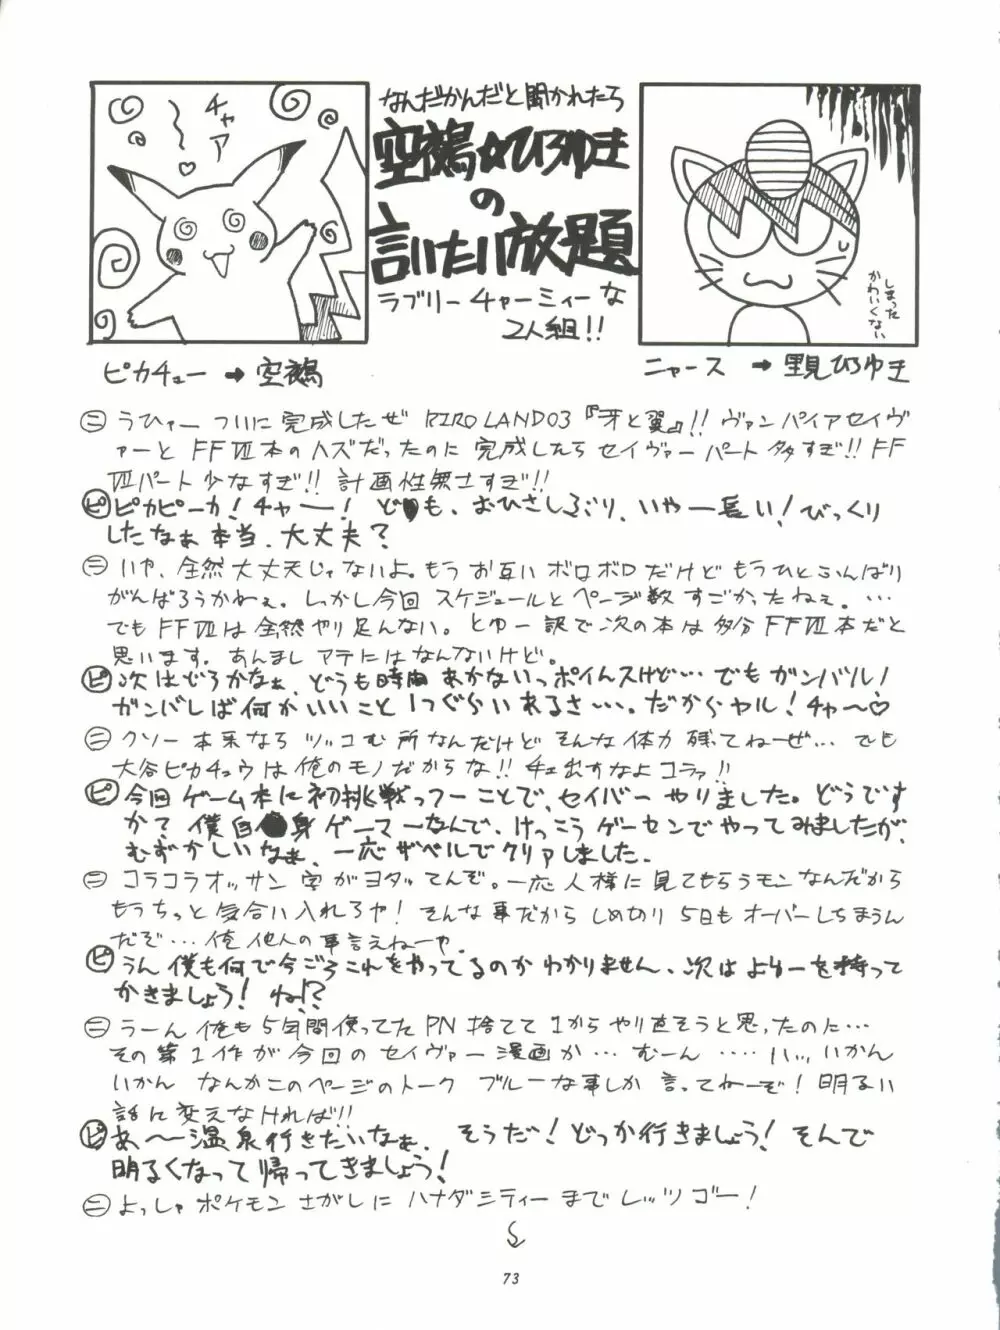 チャア
〜♡
なんだかんだと聞かれたら
空鵺☆ひろゆき
の
言いたい放題
ラブリーチャーミィーな
2人組!!
しまった
かわいくない
ピカチュー→空鵺
ニャース→里見ひろゆき
㊁うひゃーついに完成したぜ RIRO LAND03『牙と翼』!! ヴァンパイアセイヴ
ァーとFFⅦ本のハズだったのに完成したらセイヴァーパート多すぎ!! FF
Ⅶパート少なすぎ!! 計画性無さすぎ!!
ピピカピーカ!チャー!ども、おひさしぶり、いやー長い!びっくり
したなぁ本当、大丈夫?
㊁いや、全然大丈夫じゃないよ。もうお互いボロボロだけどもうひとふんばり
がんばろうかねぇ。しっかし今回スケジュールとページ数すごかったねぇ。…
でもFFⅦは全然やり足んない。とゆー訳で次の本は多分FFⅦ本だと
思います。あんましアテにはなんないけど。
ピ次はどうかなぁ、どうも時間あかないっポイんスけど…でもガンバルノ
ガンバレば何かいいこと1つぐらいあるさ…。だからヤル!チャ〜♡
㊁クソー本来ならツッコむ所なんだけどそんな体力残ってねーぜ…でも
大谷ピカチュウは俺のモノだからな!!チェ出すなよコラァ!!
ピ今回ゲーム本に初挑戦っつーことで、セイバーやりました。どうです
か?僕自身ゲーマーなんで、けっこうゲーセンでやってみましたが、
むずかしいなぁ、一応ザベルでクリアしました。
㊁コラコラオッサン字がヨタッてんぞ。一応人様に見てもらうモンなんだから
もうちっと気合い入れろや!そんな事だからしめ切り5日もオーバーしちまうん
だぞ…俺他人の事言えねーや。
ピうん僕も何で今ごろこれをやってるのかわかりません、次はよゆーを持って
かきましょう!ね!?
㊁うーん俺も5年間使ってたPN捨てて1からやり直そうと思ったのに…
その第1作が今回のセイヴァー漫画か…むーん……いっ、いかん
いかんなんかこのページのトークブルーな事しか言ってねーぞ!明るい
話に変えなければ!!
ピあ〜温泉行きたいなぁ、そうだ!どっか行きましょう!そんで
明るくなって帰ってきましょう!
㊁よっしゃポケモンさがしにハナダシティーまでレッツゴー!
73